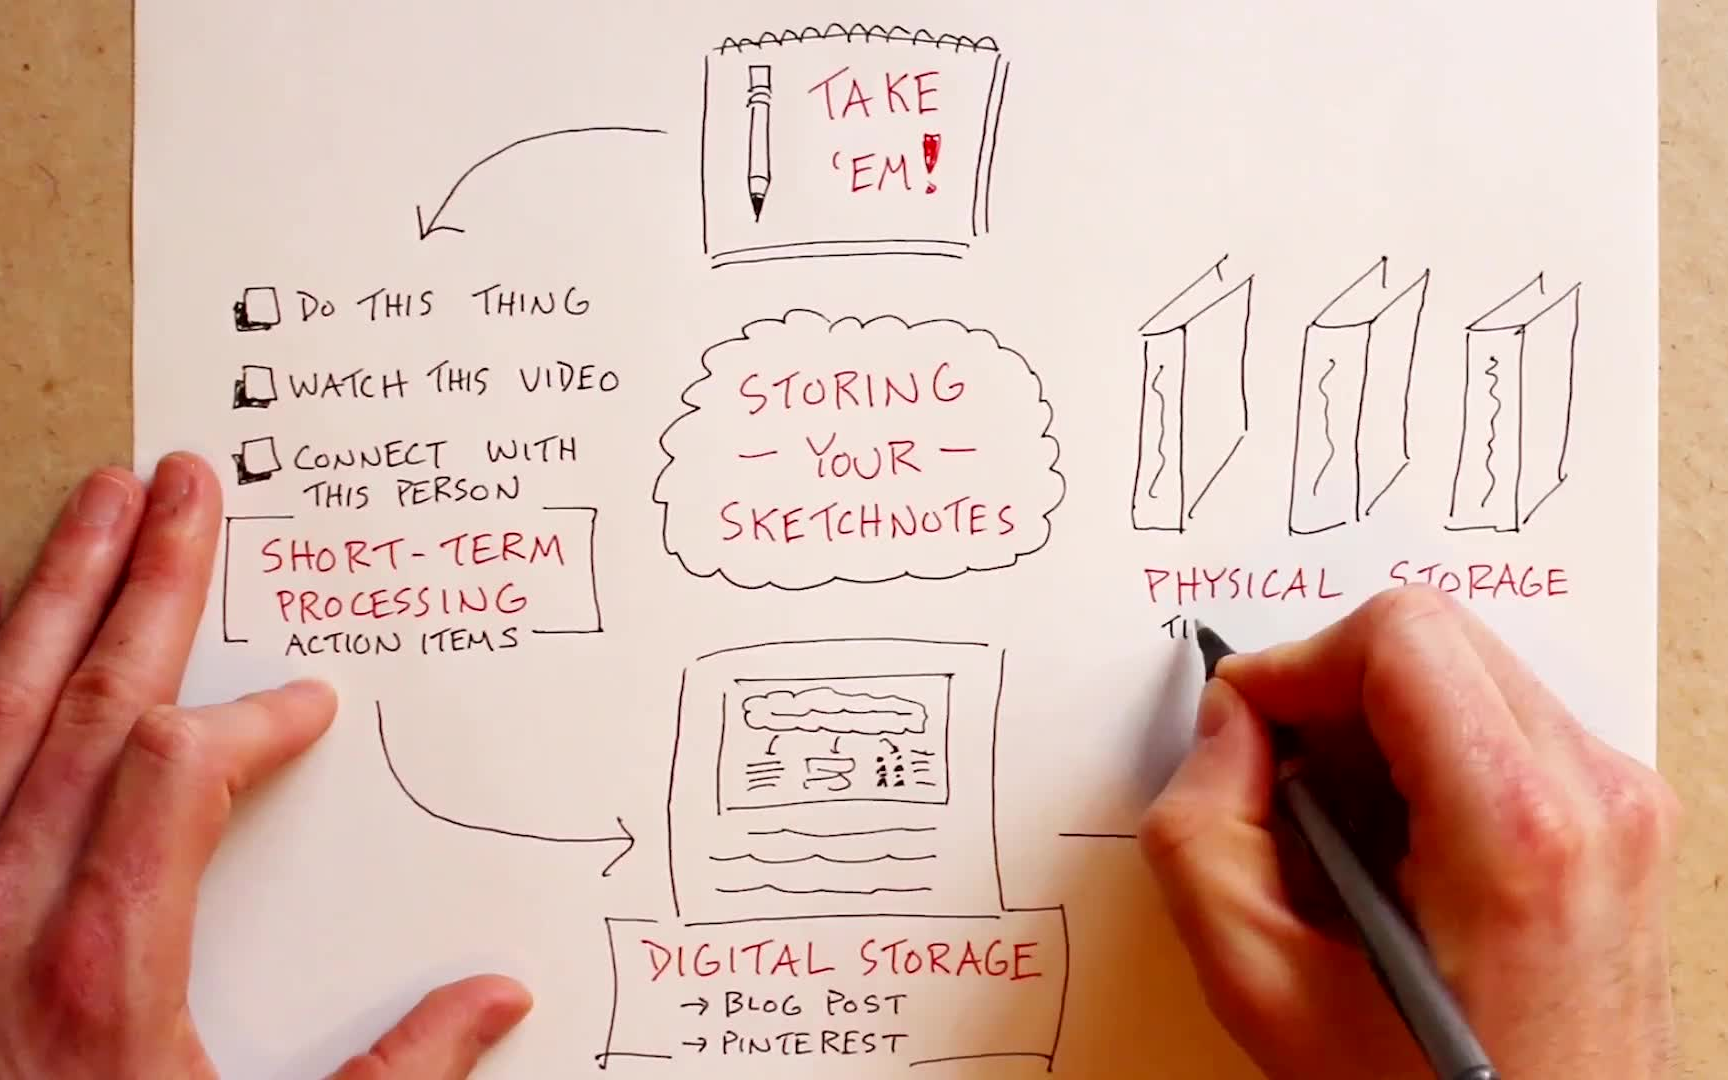 TAKE
'EM!
DO THIS THING
WATCH THIS VIDEO
CONNECT WITH
THIS PERSON
SHORT-TERM
PROCESSING
ACTION ITEMS
STORING
- YOUR -
SKETCHNOTES
PHYSICAL STORAGE
DIGITAL STORAGE
→ BLOG POST
→ PINTEREST